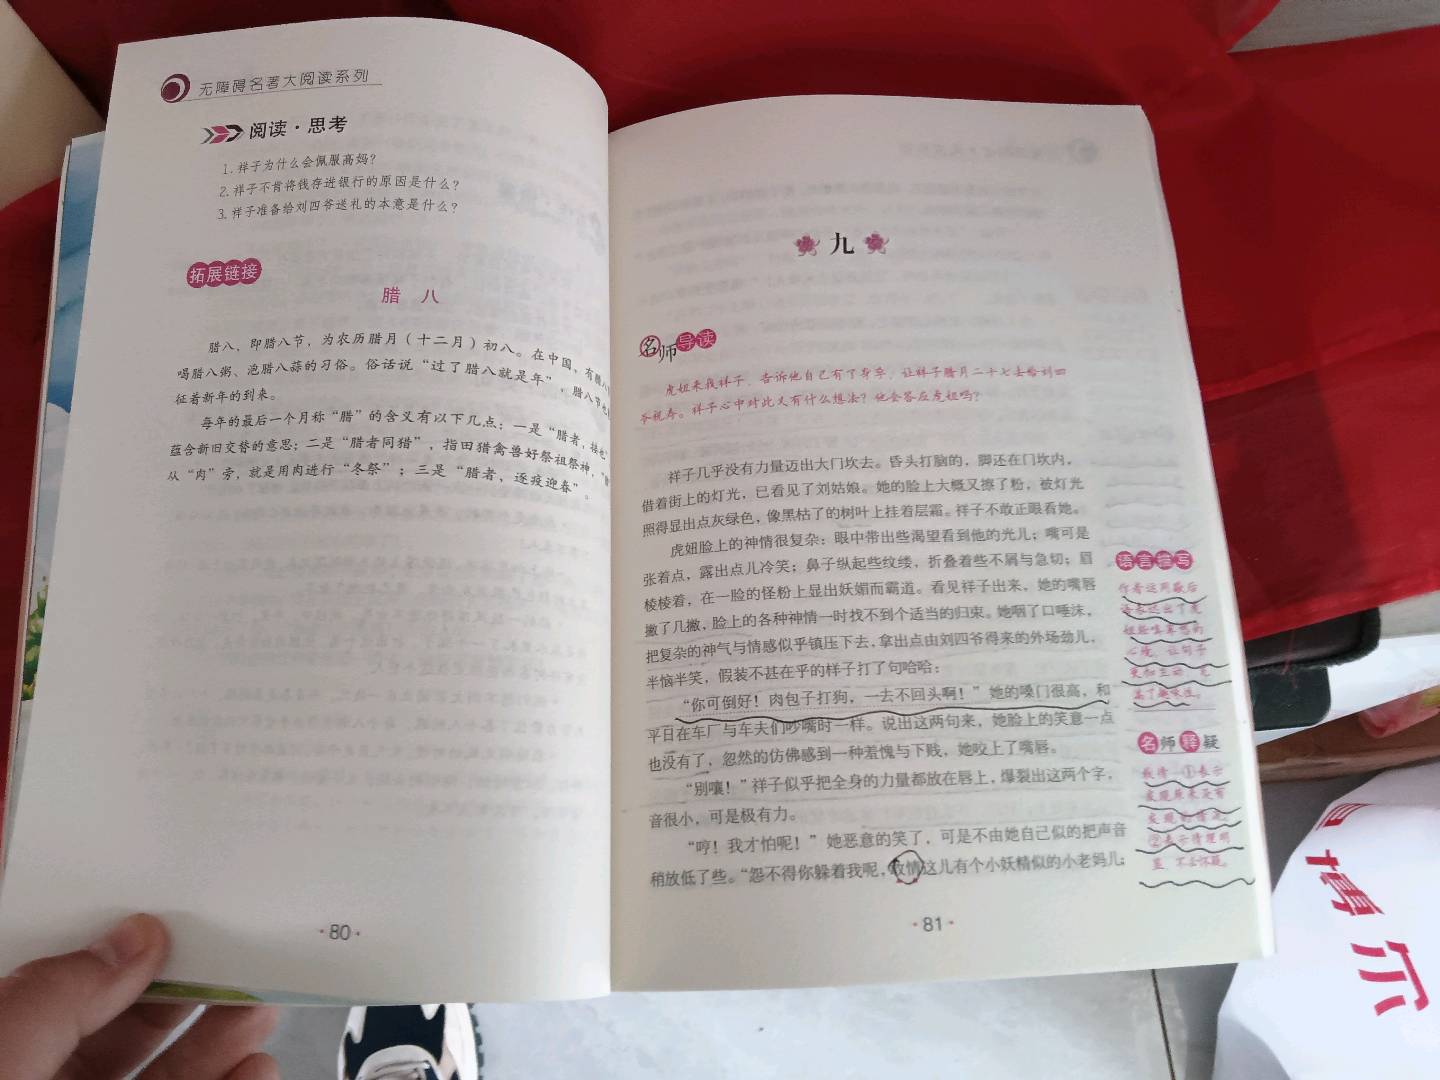 无障碍名著大阅读系列
阅读·思考
1.祥子为什么会佩服高妈？
2.祥子不肯将钱存进银行的原因是什么？
3.祥子准备给刘四爷送礼的本意是什么？
拓展链接
腊 八
腊八，即腊八节，为农历腊月（十二月）初八。在中国，有腊八
喝腊八粥、泡腊八蒜的习俗。俗话说“过了腊八就是年”，腊八节
征着新年的到来。
每年的最后一个月称“腊”的含义有以下几点：一是“腊者，接也”
蕴含新旧交替的意思；二是“腊者同猎”，指田猎禽兽好祭祖祭神，“腊
从“肉”旁，就是用肉进行“冬祭”；三是“腊者，逐疫迎春”。
·80·
九
名师导读
虎妞来找祥子，告诉他自己有了身孕，让祥子腊月二十七去给刘四
爷祝寿。祥子心中对此又有什么想法？他会答应虎妞吗？
祥子几乎没有力量迈出大门坎去。昏头打脑的，脚还在门坎内，
借着街上的灯光，已看见了刘姑娘。她的脸上大概又擦了粉，被灯光
照得显出点灰绿色，像黑枯了的树叶上挂着层霜。祥子不敢正眼看她。
虎妞脸上的神情很复杂：眼中带出些渴望看到他的光儿；嘴可是
张着点，露出点儿冷笑；鼻子纵起些纹缕，折叠着些不屑与急切；眉
棱棱着，在一脸的怪粉上显出妖媚而霸道。看见祥子出来，她的嘴唇
撇了几撇，脸上的各种神情一时找不到个适当的归束。她咽了口唾沫，
把复杂的神气与情感似乎镇压下去，拿出点由刘四爷得来的外场劲儿，
半恼半笑，假装不甚在乎的样子打了句哈哈：
“你可倒好！肉包子打狗，一去不回头啊！”她的嗓门很高，和
平日在车厂与车夫们吵嘴时一样。说出这两句来，她脸上的笑意一点
也没有了，忽然的仿佛感到一种羞愧与下贱，她咬上了嘴唇。
“别嚷！”祥子似乎把全身的力量都放在唇上，爆裂出这两个字，
音很小，可是极有力。
“哼！我才怕呢！”她恶意的笑了，可是不由她自己似的把声音
稍放低了些。“怨不得你躲着我呢，敢情这儿有个小妖精似的小老妈儿；
语言描写
作者运用歇后
语表达出了虎
心境，让句子
更加生动，充
满了趣味性。
名师释疑
敢情：①表示
发现原来没有
发现的情况。
②表示情理明
显，不必怀疑。
·81·
博